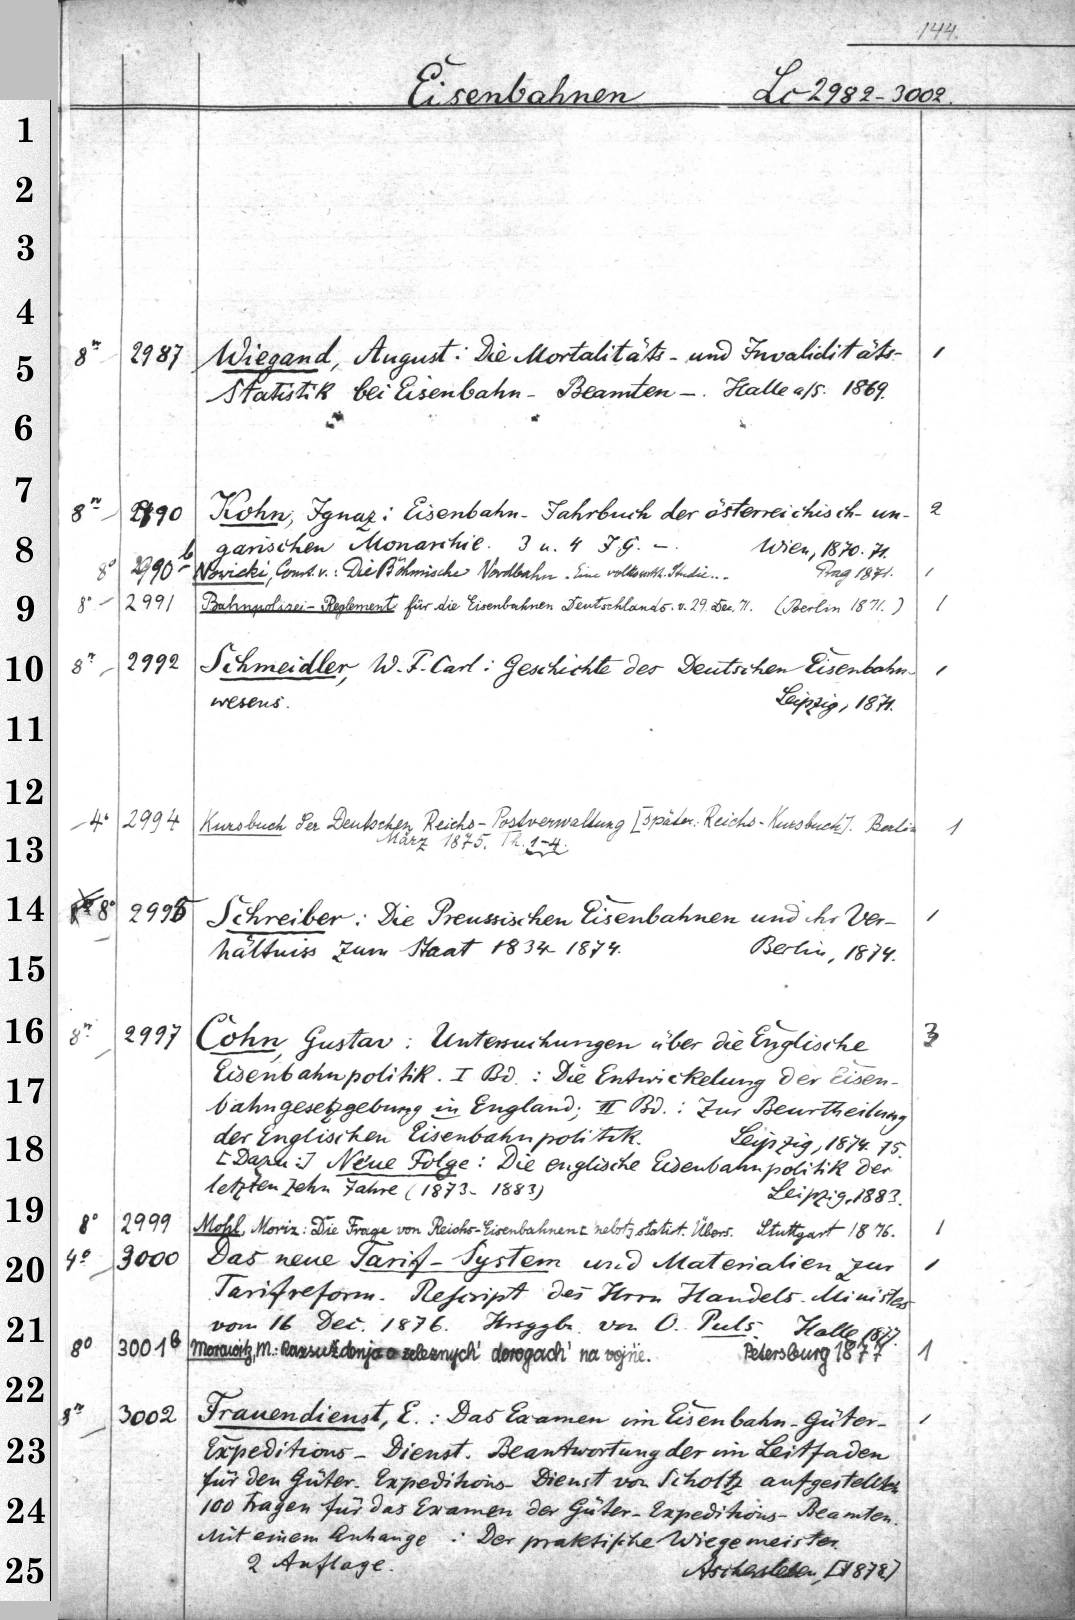 144.
Eisenbahnen Lc 2982-3002.
1
2
3
4
5
6
7
8
9
10
11
12
13
14
15
16
17
18
19
20
21
22
23
24
25
8° 2987 Wiegand, August: Die Mortalitäts- und Invaliditäts- 1
Statistik bei Eisenbahn-Beamten -. Halle a/S. 1869.
8° 2990 Kohn, Ignaz: Eisenbahn-Jahrbuch der österreichisch-un- 2
garischen Monarchie. 3 u. 4 JG. -. Wien, 1870. 71.
8° 2990 b Nowicki, Const. v.: Die Böhmische Nordbahn. Eine volkswirt. Studie... Prag 1871. 1
8° 2991 Bahnpolizei-Reglement für die Eisenbahnen Deutschlands. v. 29. Dec. 71. (Berlin 1871.) 1
8° 2992 Schmeidler, W. F. Carl: Geschichte des Deutschen Eisenbahn- 1
wesens. Leipzig, 1871.
4° 2994 Kursbuch der Deutschen Reichs-Postverwaltung [später: Reichs-Kursbuch]. Berlin 1
März 1875. Th. 1-4.
8° 2995 Schreiber: Die Preussischen Eisenbahnen und ihr Ver- 1
hältniss zum Staat 1834-1874. Berlin, 1874.
8° 2997 Cohn, Gustav: Untersuchungen über die Englische 3
Eisenbahnpolitik. I Bd.: Die Entwickelung der Eisen-
bahngesetzgebung in England; II Bd.: Zur Beurtheilung
der Englischen Eisenbahnpolitik. Leipzig, 1874. 75.
[Dazu:] Neue Folge: Die englische Eisenbahnpolitik der
letzten zehn Jahre (1873-1883) Leipzig, 1883.
8° 2999 Mohl, Moriz: Die Frage von Reichs-Eisenbahnen nebst statist. Übers. Stuttgart 1876. 1
4° 3000 Das neue Tarif-System und Materialien zur 1
Tarifreform. Rescript des Hrrn Handels-Ministers
vom 16 Dec. 1876. Hrsggbn. von O. Puls. Halle 1877.
8° 3001 b Morawitz, M.: Razsuždenja o zeleznych' dorogach' na vojně. Petersburg 1877 1
8° 3002 Frauendienst, E.: Das Examen im Eisenbahn-Güter- 1
Expeditions-Dienst. Beantwortung der im Leitfaden
für den Güter-Expeditions-Dienst von Scholtz aufgestellten
100 Fragen für das Examen der Güter-Expeditions-Beamten.
Mit einem Anhange: Der praktische Wiegemeister
2 Auflage. Aschersleben, [1878]